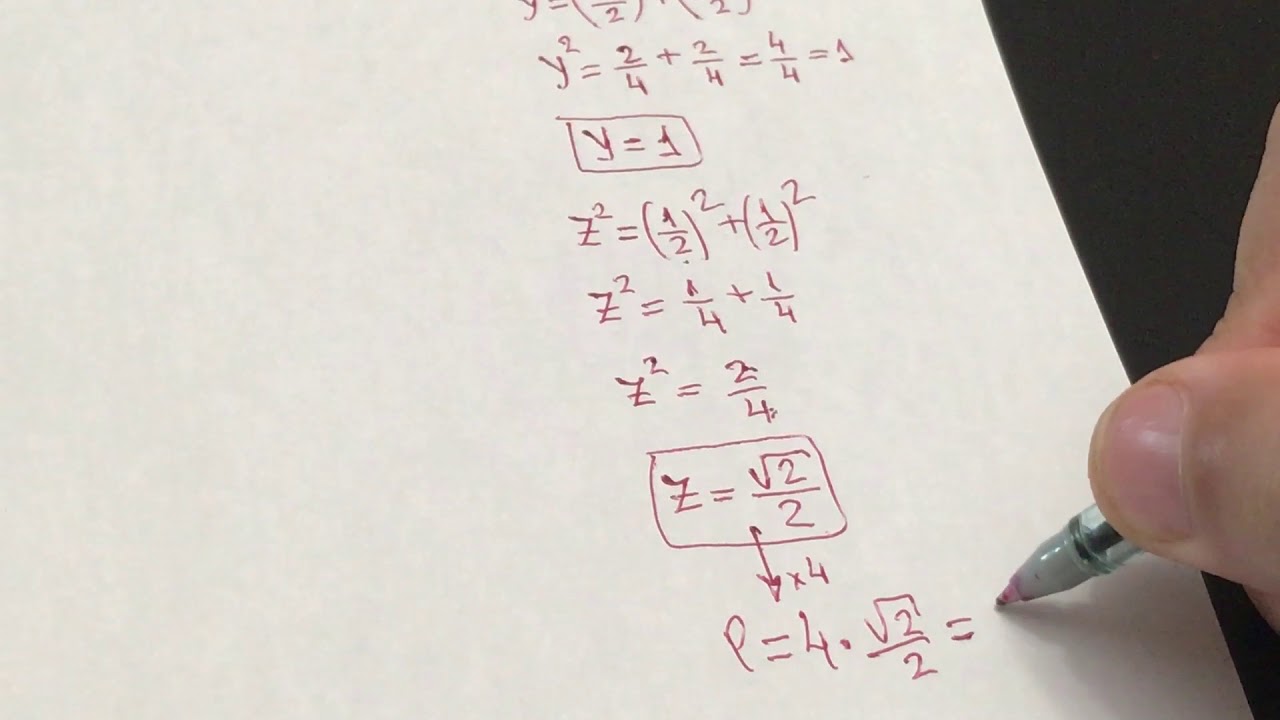 y² = 2/4 + 2/4 = 4/4 = 1
y = 1
z² = (1/2)² + (1/2)²
z² = 1/4 + 1/4
z² = 2/4
z = √2/2
×4
P = 4 · √2/2 =